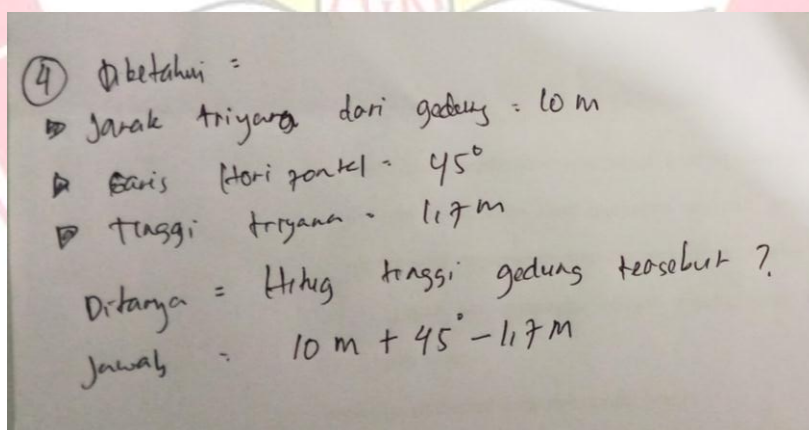 4 Diketahui =
Jarak triyana dari gedung = 10 m
Garis Horizontal = 45°
Tinggi triyana = 1,7 m
Ditanya = Hitug tinggi gedung teasebut ?
Jawab = 10 m + 45° - 1,7 m